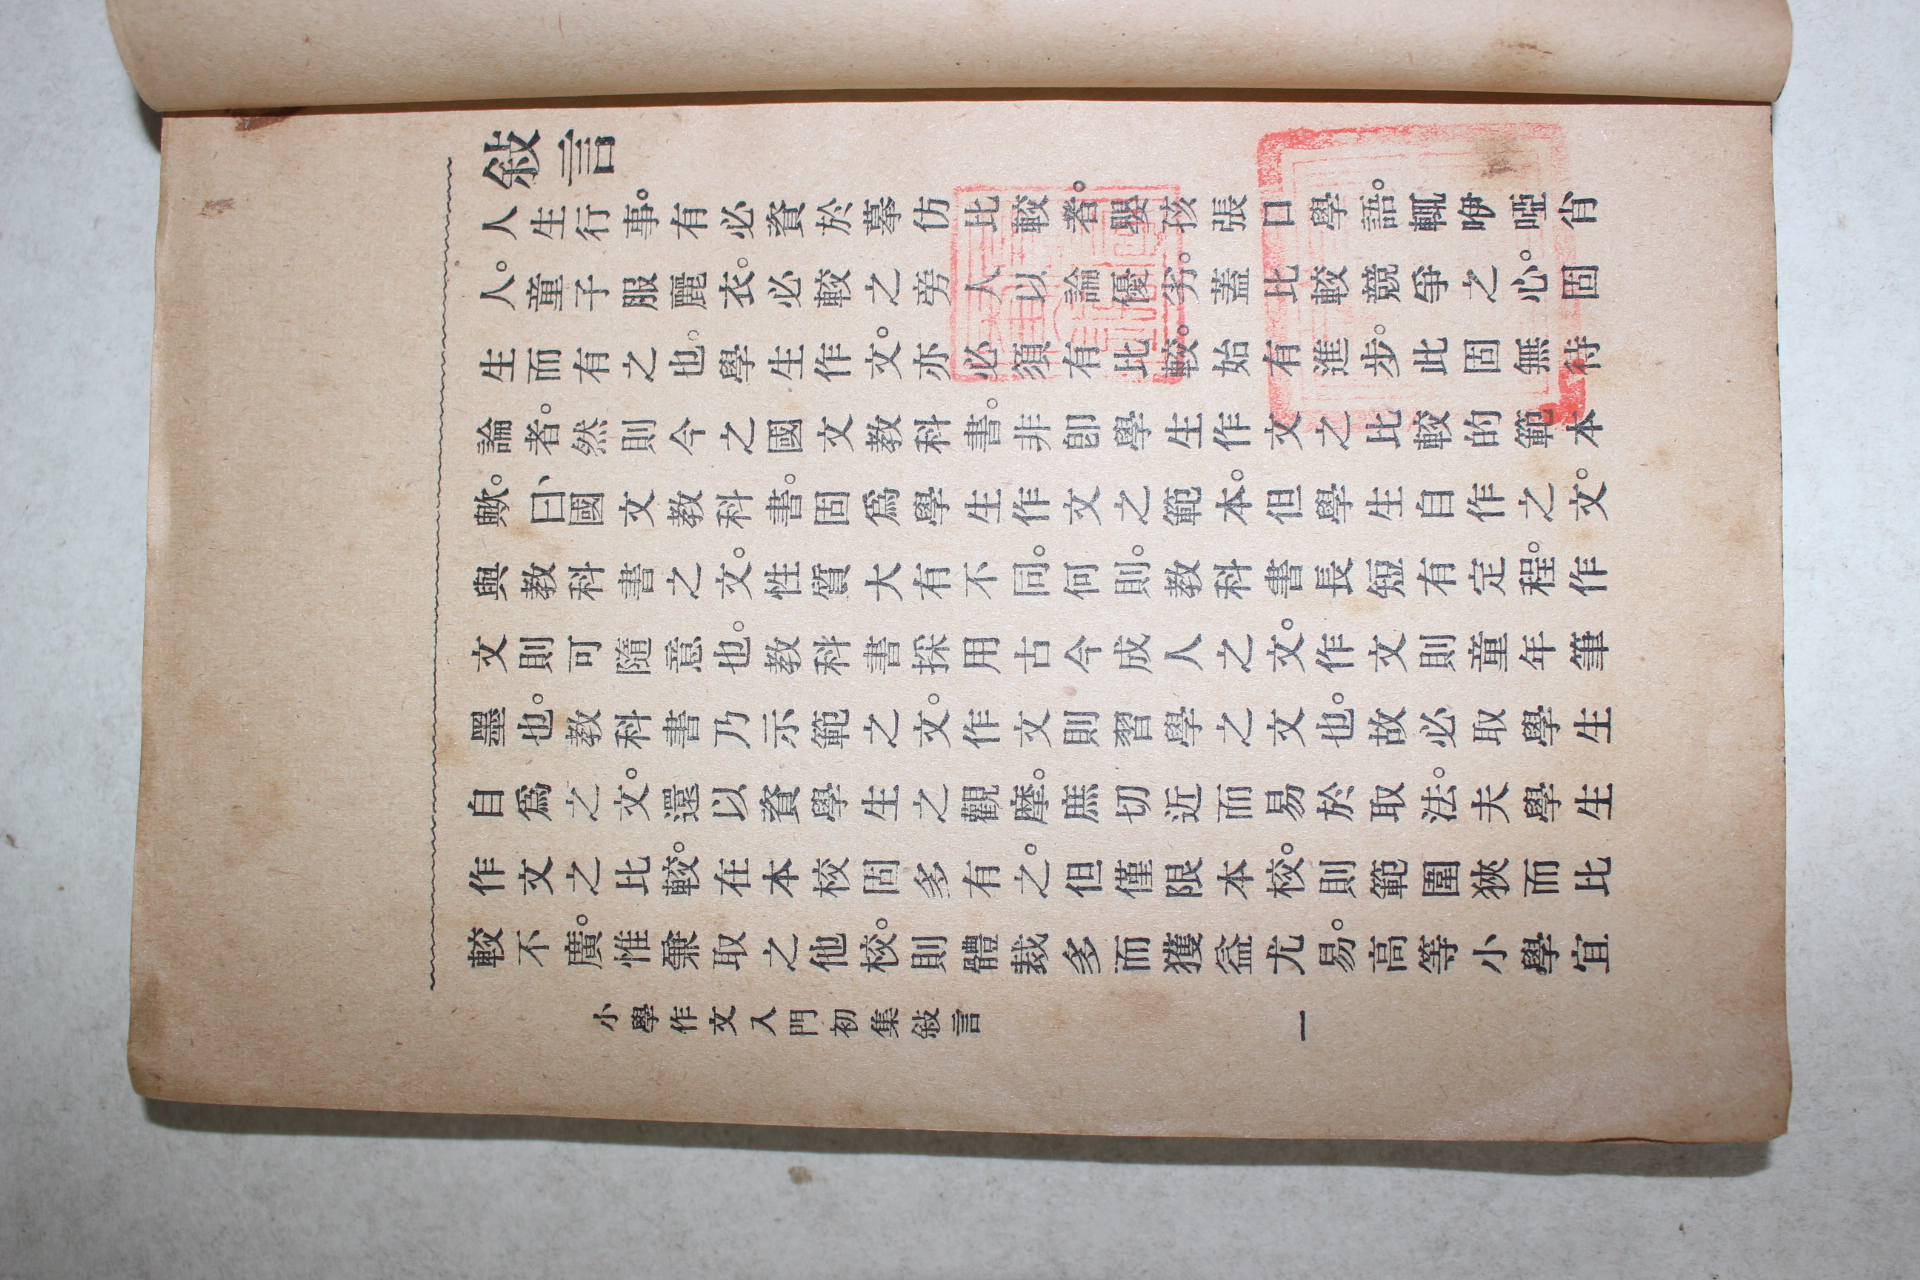 敍言
人生行事。有必資於摹仿比較者。嬰孩張口學語。輒咿啞肖
人。童子服麗衣。必較之旁人以論優劣。蓋比較競爭之心。固
生而有之也。學生作文。亦必須有比較。始有進步。此固無待
論者。然則今之國文教科書。非卽學生作文之比較的範本
歟。曰、國文教科書。固爲學生作文之範本。但學生自作之文。
與教科書之文。性質大有不同。何則。教科書長短有定程。作
文則可隨意也。教科書採用古今成人之文。作文則童年筆
墨也。教科書乃示範之文。作文則習學之文也。故必取學生
自爲之文。還以資學生之觀摩。庶切近而易於取法。夫學生
作文之比較。在本校固多有之。但僅限本校。則範圍狹而比
較不廣。惟兼取之他校。則體裁多而獲益尤易。高等小學宜
小學作文入門初集敍言
一